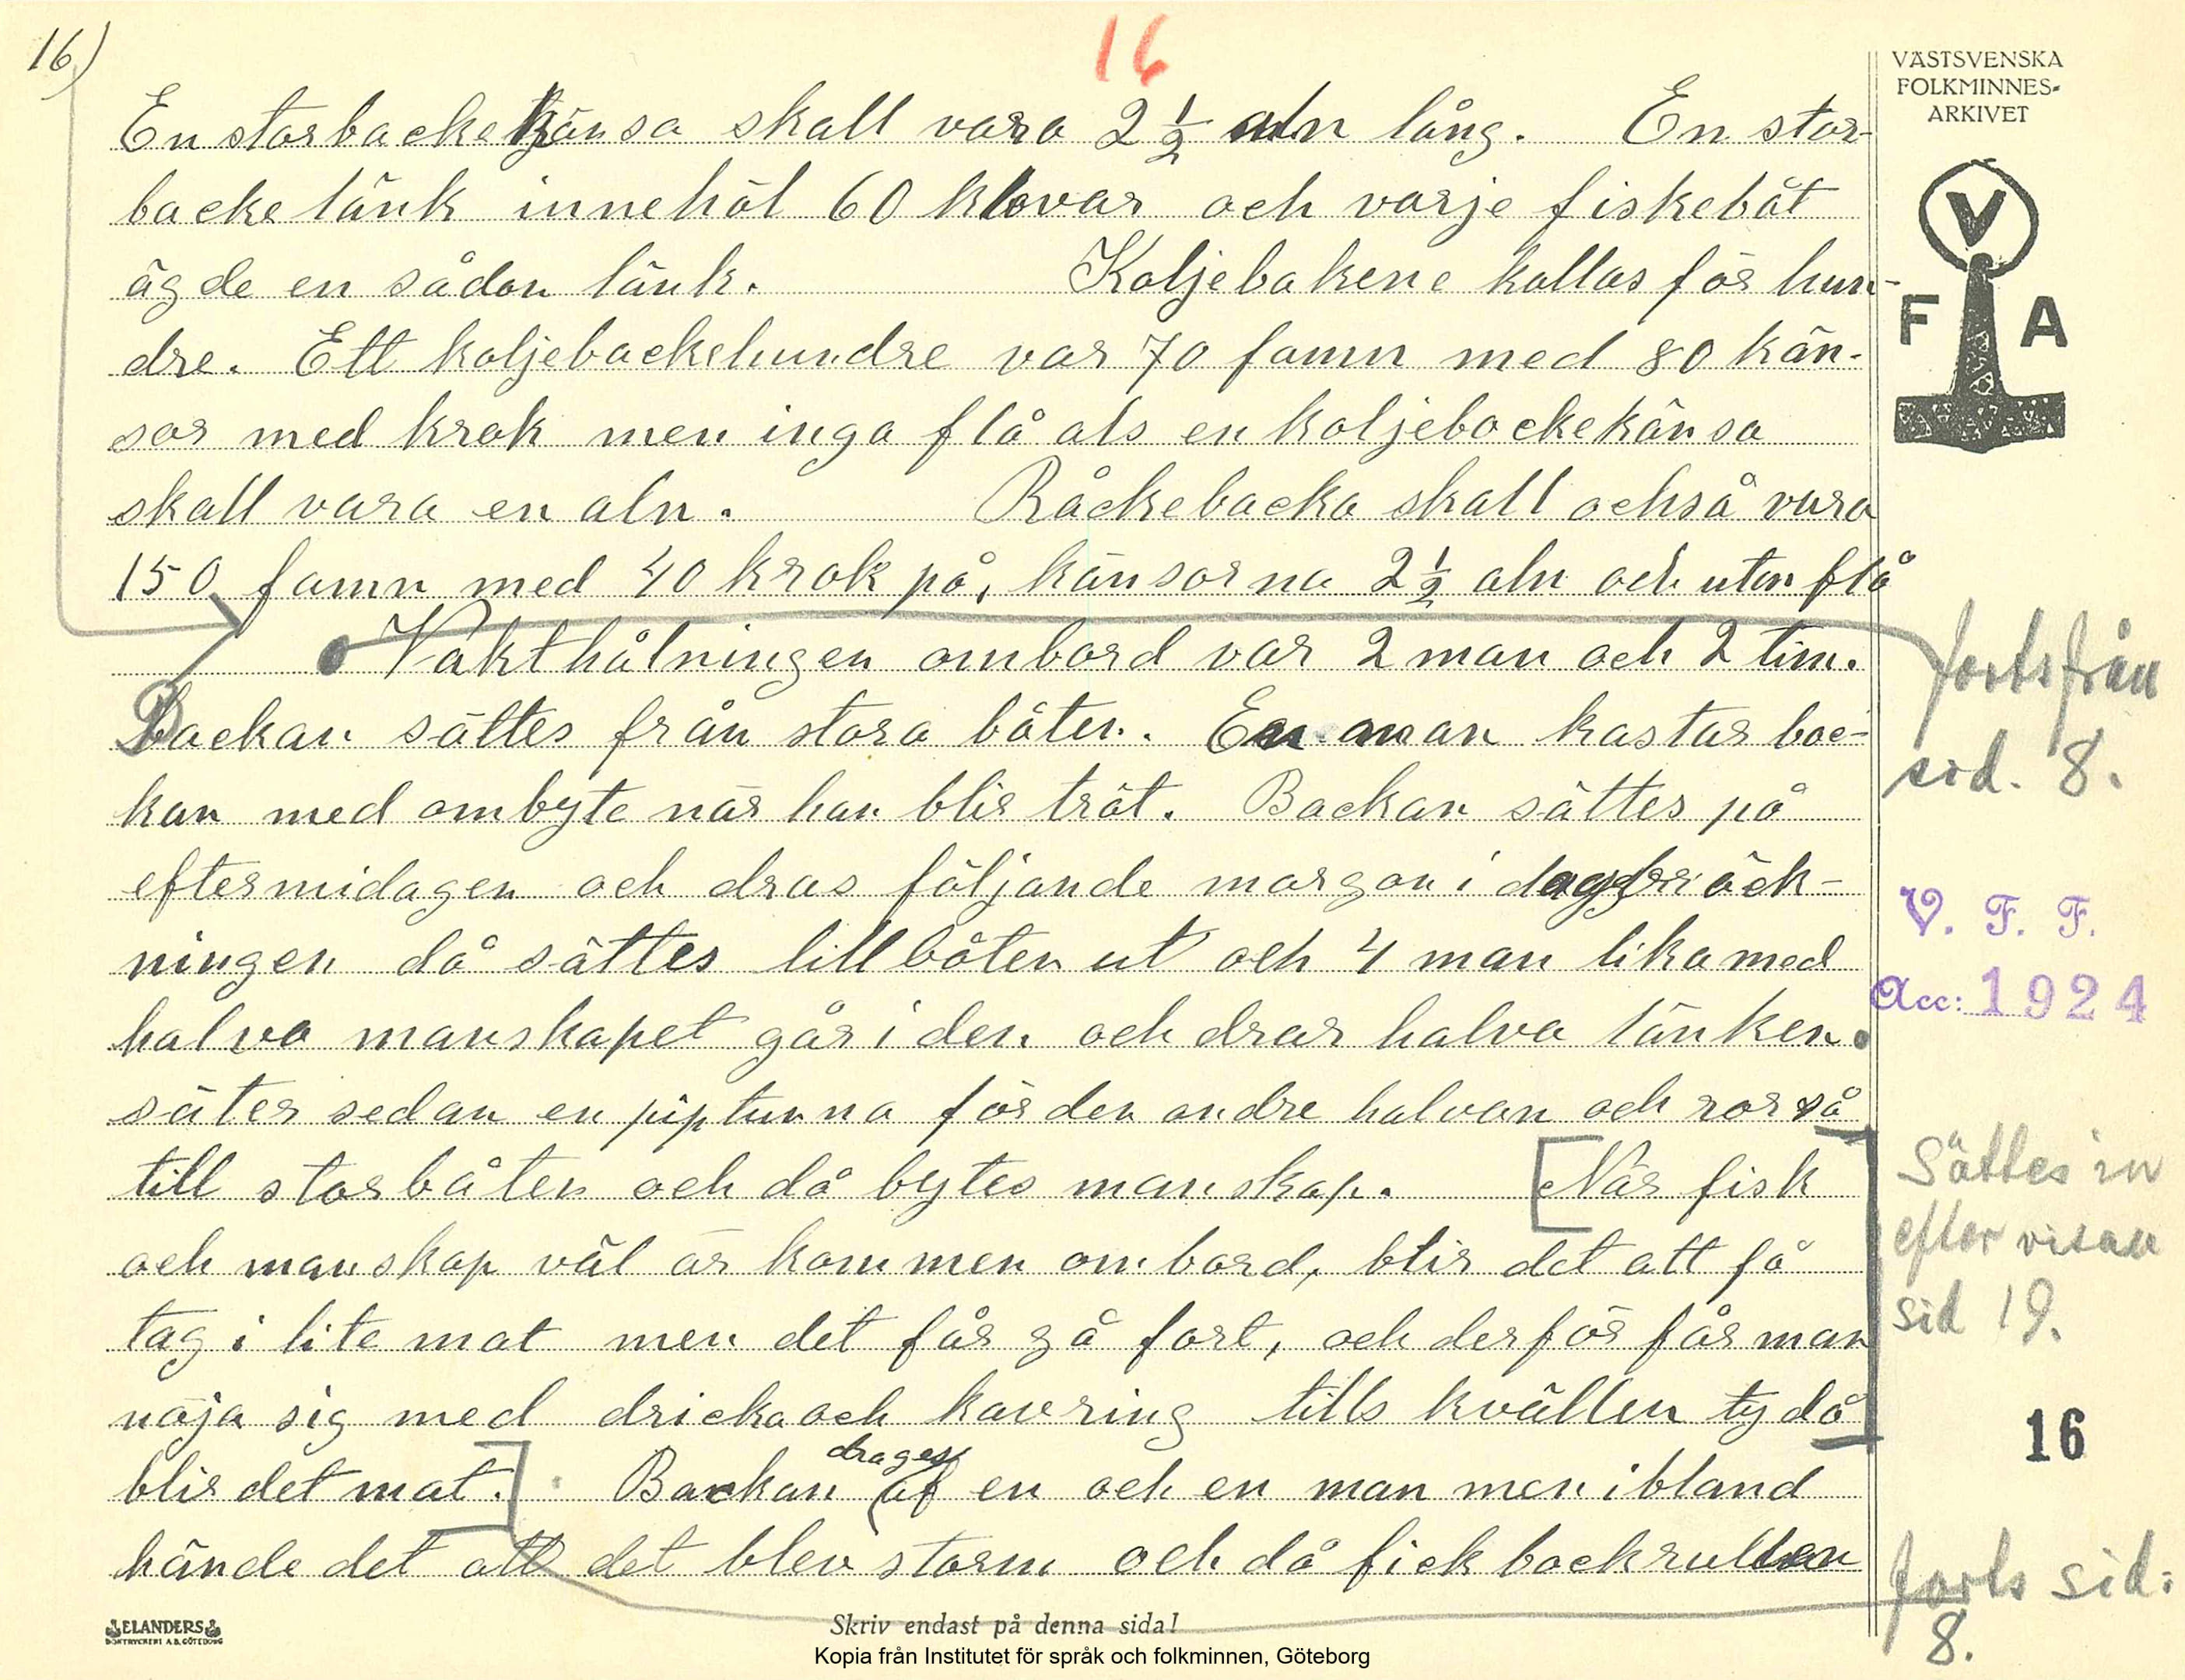 16)
16
En storbackekänsa skall vara 2 1/2 aln lång. En stor-
backelänk innehöl 60 klovar och varje fiskebåt
ägde en sådan länk. Koljebakene kallas för hun-
dre. Ett koljebackehundre var 70 famn med 80 kän-
sor med krok men inga flå als en koljebackekänsa
skall vara en aln. Råckebacka skall också vara
150 famn med 40 krok på, känsorna 2 1/2 aln och utan flå
Vakthålningen ombord var 2 man och 2 tim.
Backan sättes från stora båten. En man kastar bac-
kan med ombyte när han blir tröt. Backan sättes på
eftermidagen och dras följande morgon i dagbräck-
ningen då sättes lillbåten ut och 4 man lika med
halva manskapet går i den och drar halva länken.
säter sedan en piptunna för den andre halvan och ror så
till storbåten och då bytes manskap. [När fisk
och manskap väl är kommen ombord, blir det att få
tag i lite mat men det får gå fort, och derför får man
nöja sig med dricka och kavring tills kvällen ty då
blir det mat.] Backan drages af en och en man men ibland
hände det att det blev storm och då fick backrullen
VÄSTSVENSKA
FOLKMINNES-
ARKIVET
V
F A
forts från
sid. 8.
V. F. F.
Acc: 1924
Sättes in
efter visan
sid 19.
16
forts sid:
8.
ELANDERS
BOKTRYCKERI A.B. GÖTEBORG
Skriv endast på denna sida!
Kopia från Institutet för språk och folkminnen, Göteborg